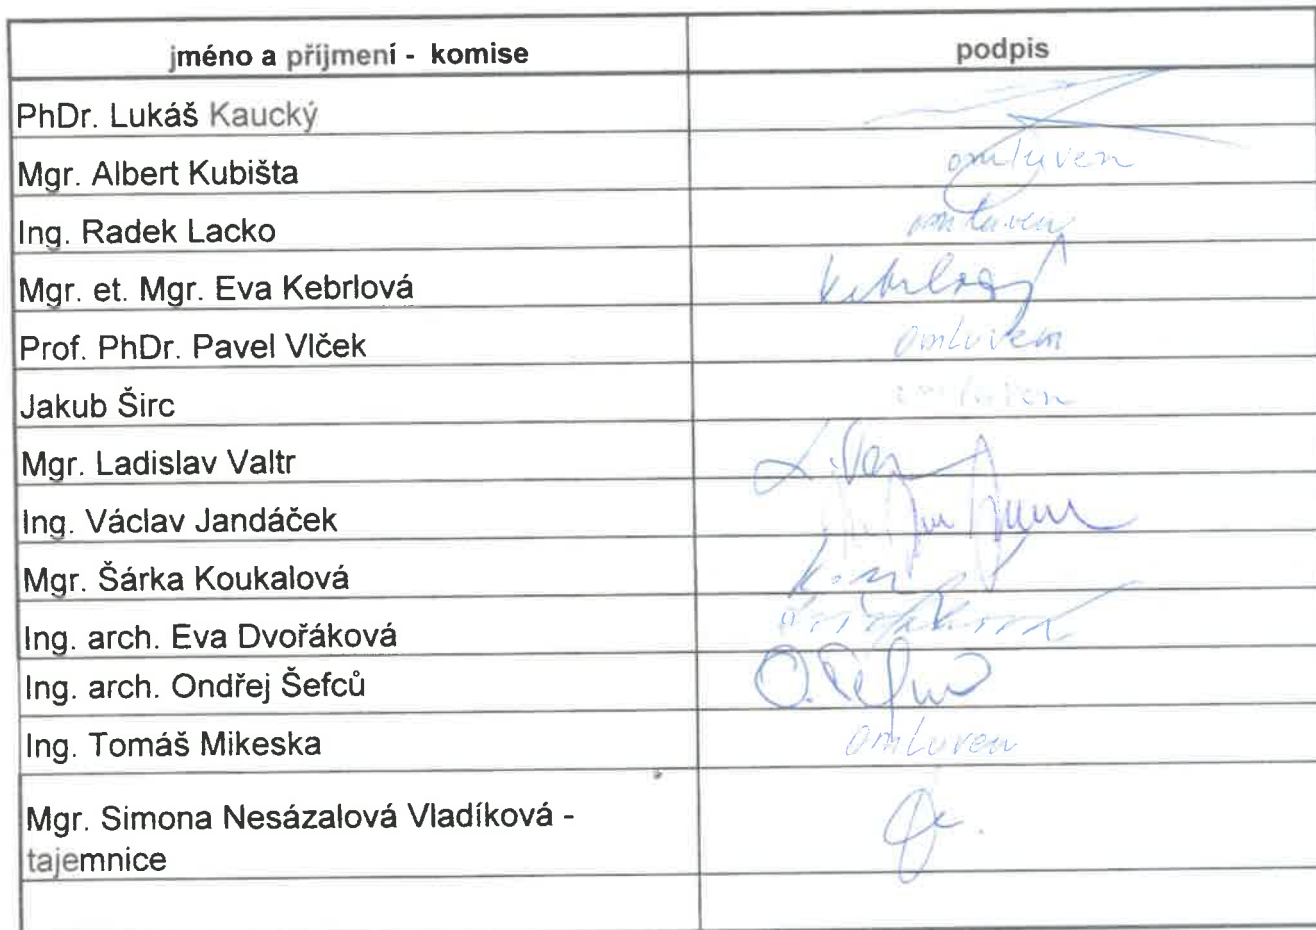 jméno a příjmení - komise podpis
PhDr. Lukáš Kaucký
Mgr. Albert Kubišta omluven
Ing. Radek Lacko omluven
Mgr. et. Mgr. Eva Kebrlová Kebrlová
Prof. PhDr. Pavel Vlček omluven
Jakub Širc omluven
Mgr. Ladislav Valtr
Ing. Václav Jandáček
Mgr. Šárka Koukalová
Ing. arch. Eva Dvořáková
Ing. arch. Ondřej Šefců
Ing. Tomáš Mikeska omluven
Mgr. Simona Nesázalová Vladíková -
tajemnice